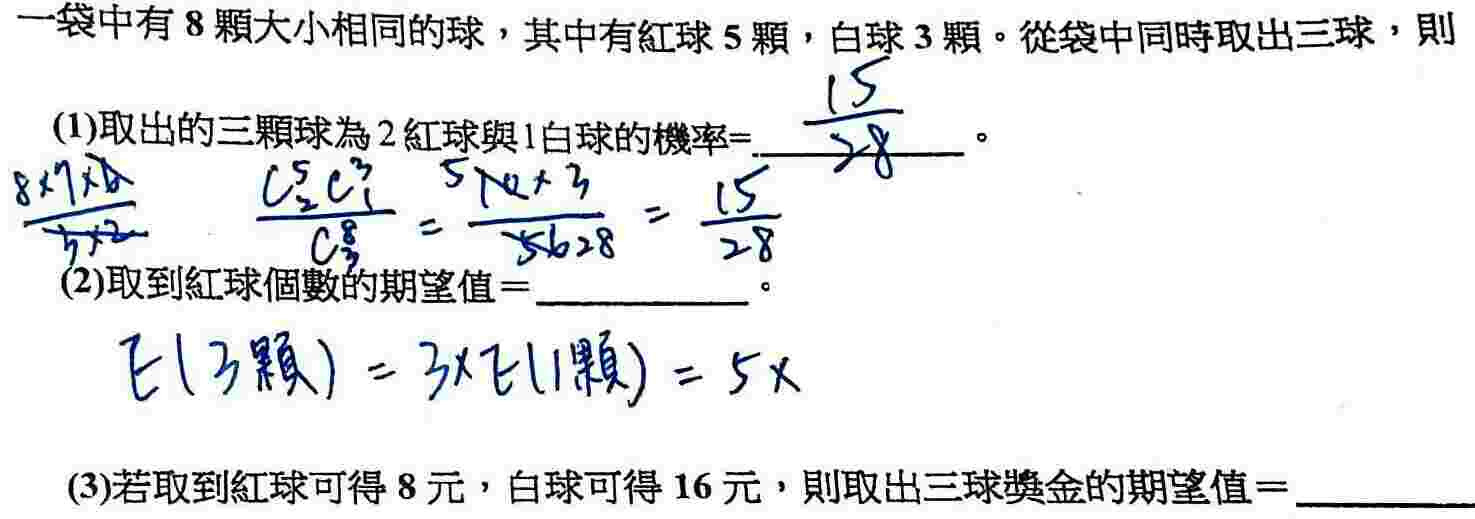 一袋中有 8 顆大小相同的球，其中有紅球 5 顆，白球 3 顆。從袋中同時取出三球，則
(1)取出的三顆球為 2 紅球與 1 白球的機率= 15/28 。
8×7×6/3×2 C⁵₂C³₁/C⁸₃ = 5 10×3/56 28 = 15/28
(2)取到紅球個數的期望值＝ 。
E(3顆) = 3×E(1顆) = 5×
(3)若取到紅球可得 8 元，白球可得 16 元，則取出三球獎金的期望值＝